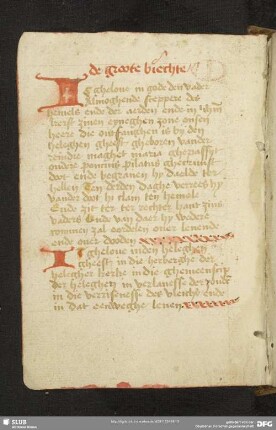 de groote biechte
Ic gheloue in gode den vader
almoghende sceppere des
hemels ende der aerden ende in ihm
kerst zinen eyneghen zone onsen
heere die ontfanghen is by den
heleghen gheest gheboren vander
reindre maghet maria ghepassyt
ondre poncius pilatus ghecruust
doot ende begrauen hy daelde ter
hellen Ten derden daghe verrees hy
vander doot hi clam ten hemele
Ende zit ter rechter hant zins
vaders Ende van daer hy wedere
commen zal oordelen ouer leuende
ende ouer dooden
Ic gheloue inden heleghen
gheest in die herberghe der
helegher kerke in die ghemeenscip
der heleghen in verlanesse der zonden
in die verrisenesse des vleeschs ende
in dat eeuweghe leuen
SLUB
DFG